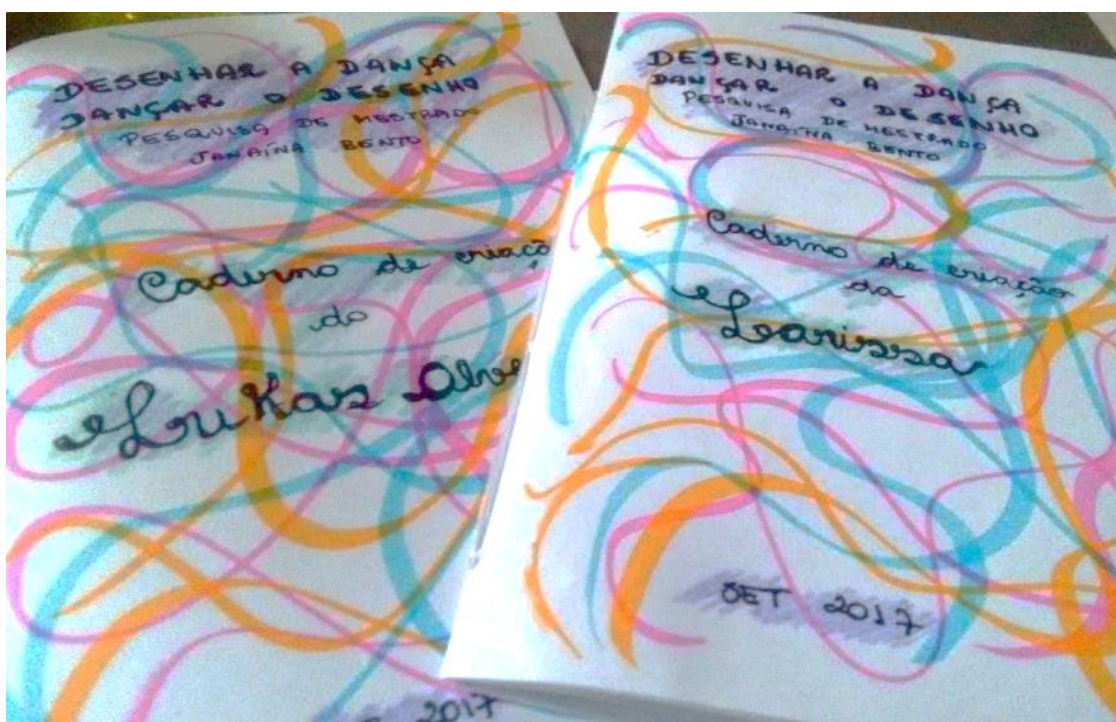 DESENHAR A DANÇA
DANÇAR O DESENHO
PESQUISA DE MESTRADO
JANAÍNA BENTO
Caderno de criaçã
do
Lukas Alve
2017
DESENHAR A DANÇA
DANÇAR O DESENHO
PESQUISA DE MESTRADO
JANAÍNA BENTO
Caderno de criação
da
Larissa
SET 2017